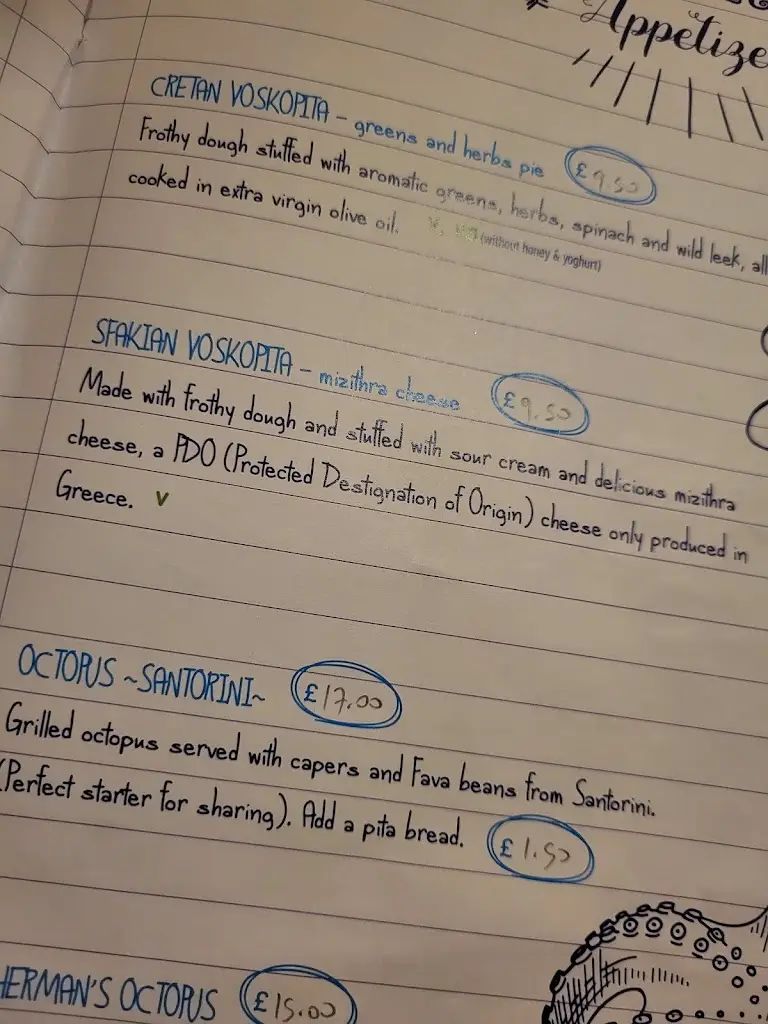 Appetize
CRETAN VOSKOPITA - greens and herbs pie £9.50
Frothy dough stuffed with aromatic greens, herbs, spinach and wild leek, all
cooked in extra virgin olive oil. V, (without honey & yoghurt)
SFAKIAN VOSKOPITA - mizithra cheese £9.50
Made with frothy dough and stuffed with sour cream and delicious mizithra
cheese, a PDO (Protected Destignation of Origin) cheese only produced in
Greece. V
OCTOPUS ~SANTORINI~ £17.00
Grilled octopus served with capers and Fava beans from Santorini.
(Perfect starter for sharing). Add a pita bread. £1.50
HERMAN'S OCTOPUS £15.00